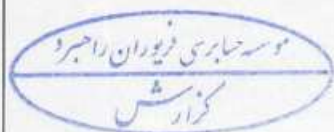 موسسه حسابرسی فریوران راهبرد
گزارش